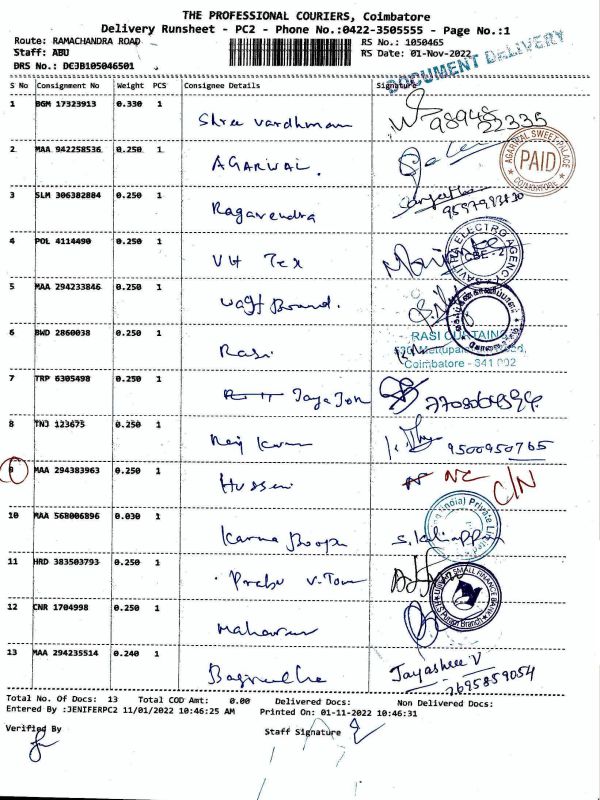 THE PROFESSIONAL COURIERS, Coimbatore
Delivery Runsheet - PC2 - Phone No.:0422-3505555 - Page No.:1
Route: RAMACHANDRA ROAD RS No.: 1050465
Staff: ABU RS Date: 01-Nov-2022
DRS No.: DCJB105046501
DOCUMENT DELIVERY
S No Consignment No Weight PCS Consignee Details Signature
1 BGM 17323913 0.330 1 Shree Vardhman 98948
22335
2 MAA 942258536 0.250 1 AGARWAL.
AGARWAL SWEET PALACE
PAID
COIMBATORE
3 SLM 306382884 0.250 1 Ragavendra
4 POL 4114490 0.250 1 Vht Tex
ELECTRO AGENCY
CBE - 2
5 MAA 294233846 0.250 1 Brand.
6 BWD 2860038 0.250 1 Rasi
RASI CURTAINS
Coimbatore - 641 002
7 TRP 6305498 0.250 1
8 TNJ 123675 0.250 1 Raj Kumar 9500950765
9 MAA 294383963 0.250 1 Hussen NC C/N
10 MAA 568006896 0.030 1 Karma
(India) Private Limited
11 HRD 383503793 0.250 1 Prabu V. Tom
SMALL FINANCE BANK
12 CNR 1704998 0.250 1
13 MAA 294235514 0.240 1 Jayashree V
7695859054
Total No. Of Docs: 13 Total COD Amt: 0.00 Delivered Docs: Non Delivered Docs:
Entered By :JENIFERPC2 11/01/2022 10:46:25 AM Printed On: 01-11-2022 10:46:31
Verified By Staff Signature